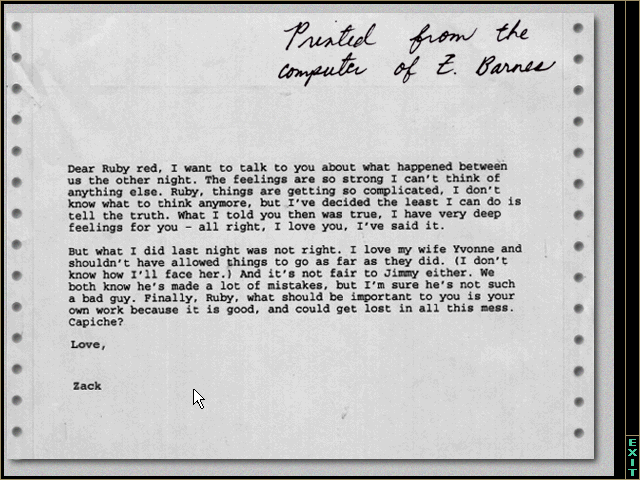 Printed from the
computer of Z. Barnes
Dear Ruby red, I want to talk to you about what happened between
us the other night. The feelings are so strong I can't think of
anything else. Ruby, things are getting so complicated, I don't
know what to think anymore, but I've decided the least I can do is
tell the truth. What I told you then was true, I have very deep
feelings for you - all right, I love you, I've said it.
But what I did last night was not right. I love my wife Yvonne and
shouldn't have allowed things to go as far as they did. (I don't
know how I'll face her.) And it's not fair to Jimmy either. We
both know he's made a lot of mistakes, but I'm sure he's not such
a bad guy. Finally, Ruby, what should be important to you is your
own work because it is good, and could get lost in all this mess.
Capiche?
Love,
Zack
EXIT